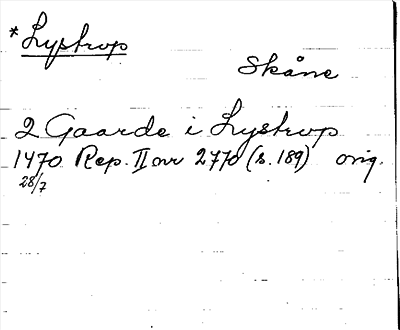 *Lystrup
Skåne
2 Gaarde i Lystrup
1470 Rep. II nr 2770 (s. 189) orig.
28/7